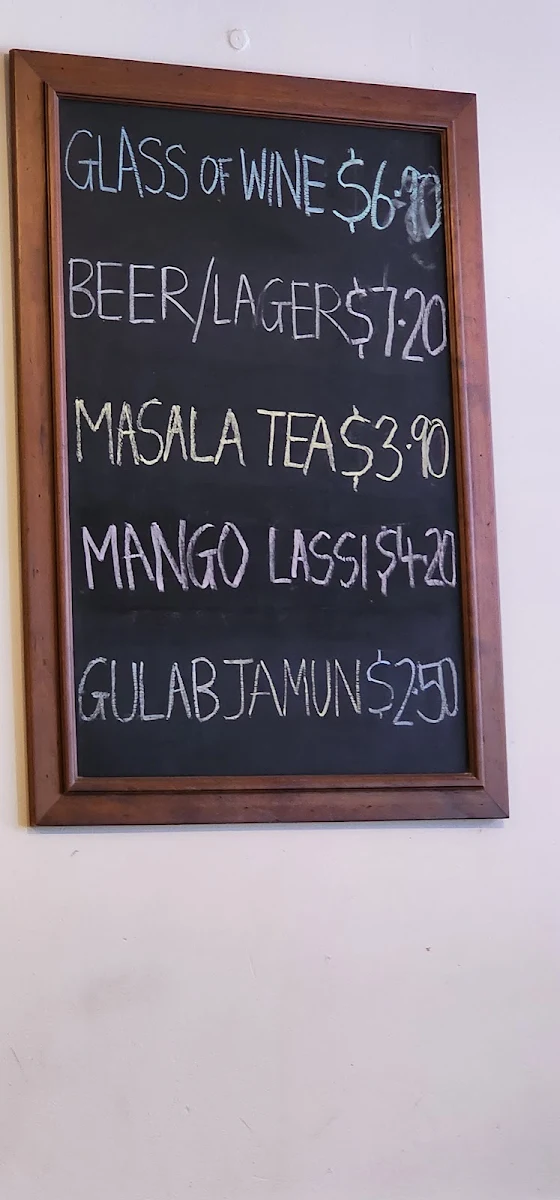 GLASS OF WINE
BEER/LAGER $7.20
MASALA TEA $3.90
MANGO LASSI $4.20
GULAB JAMUN $2.50